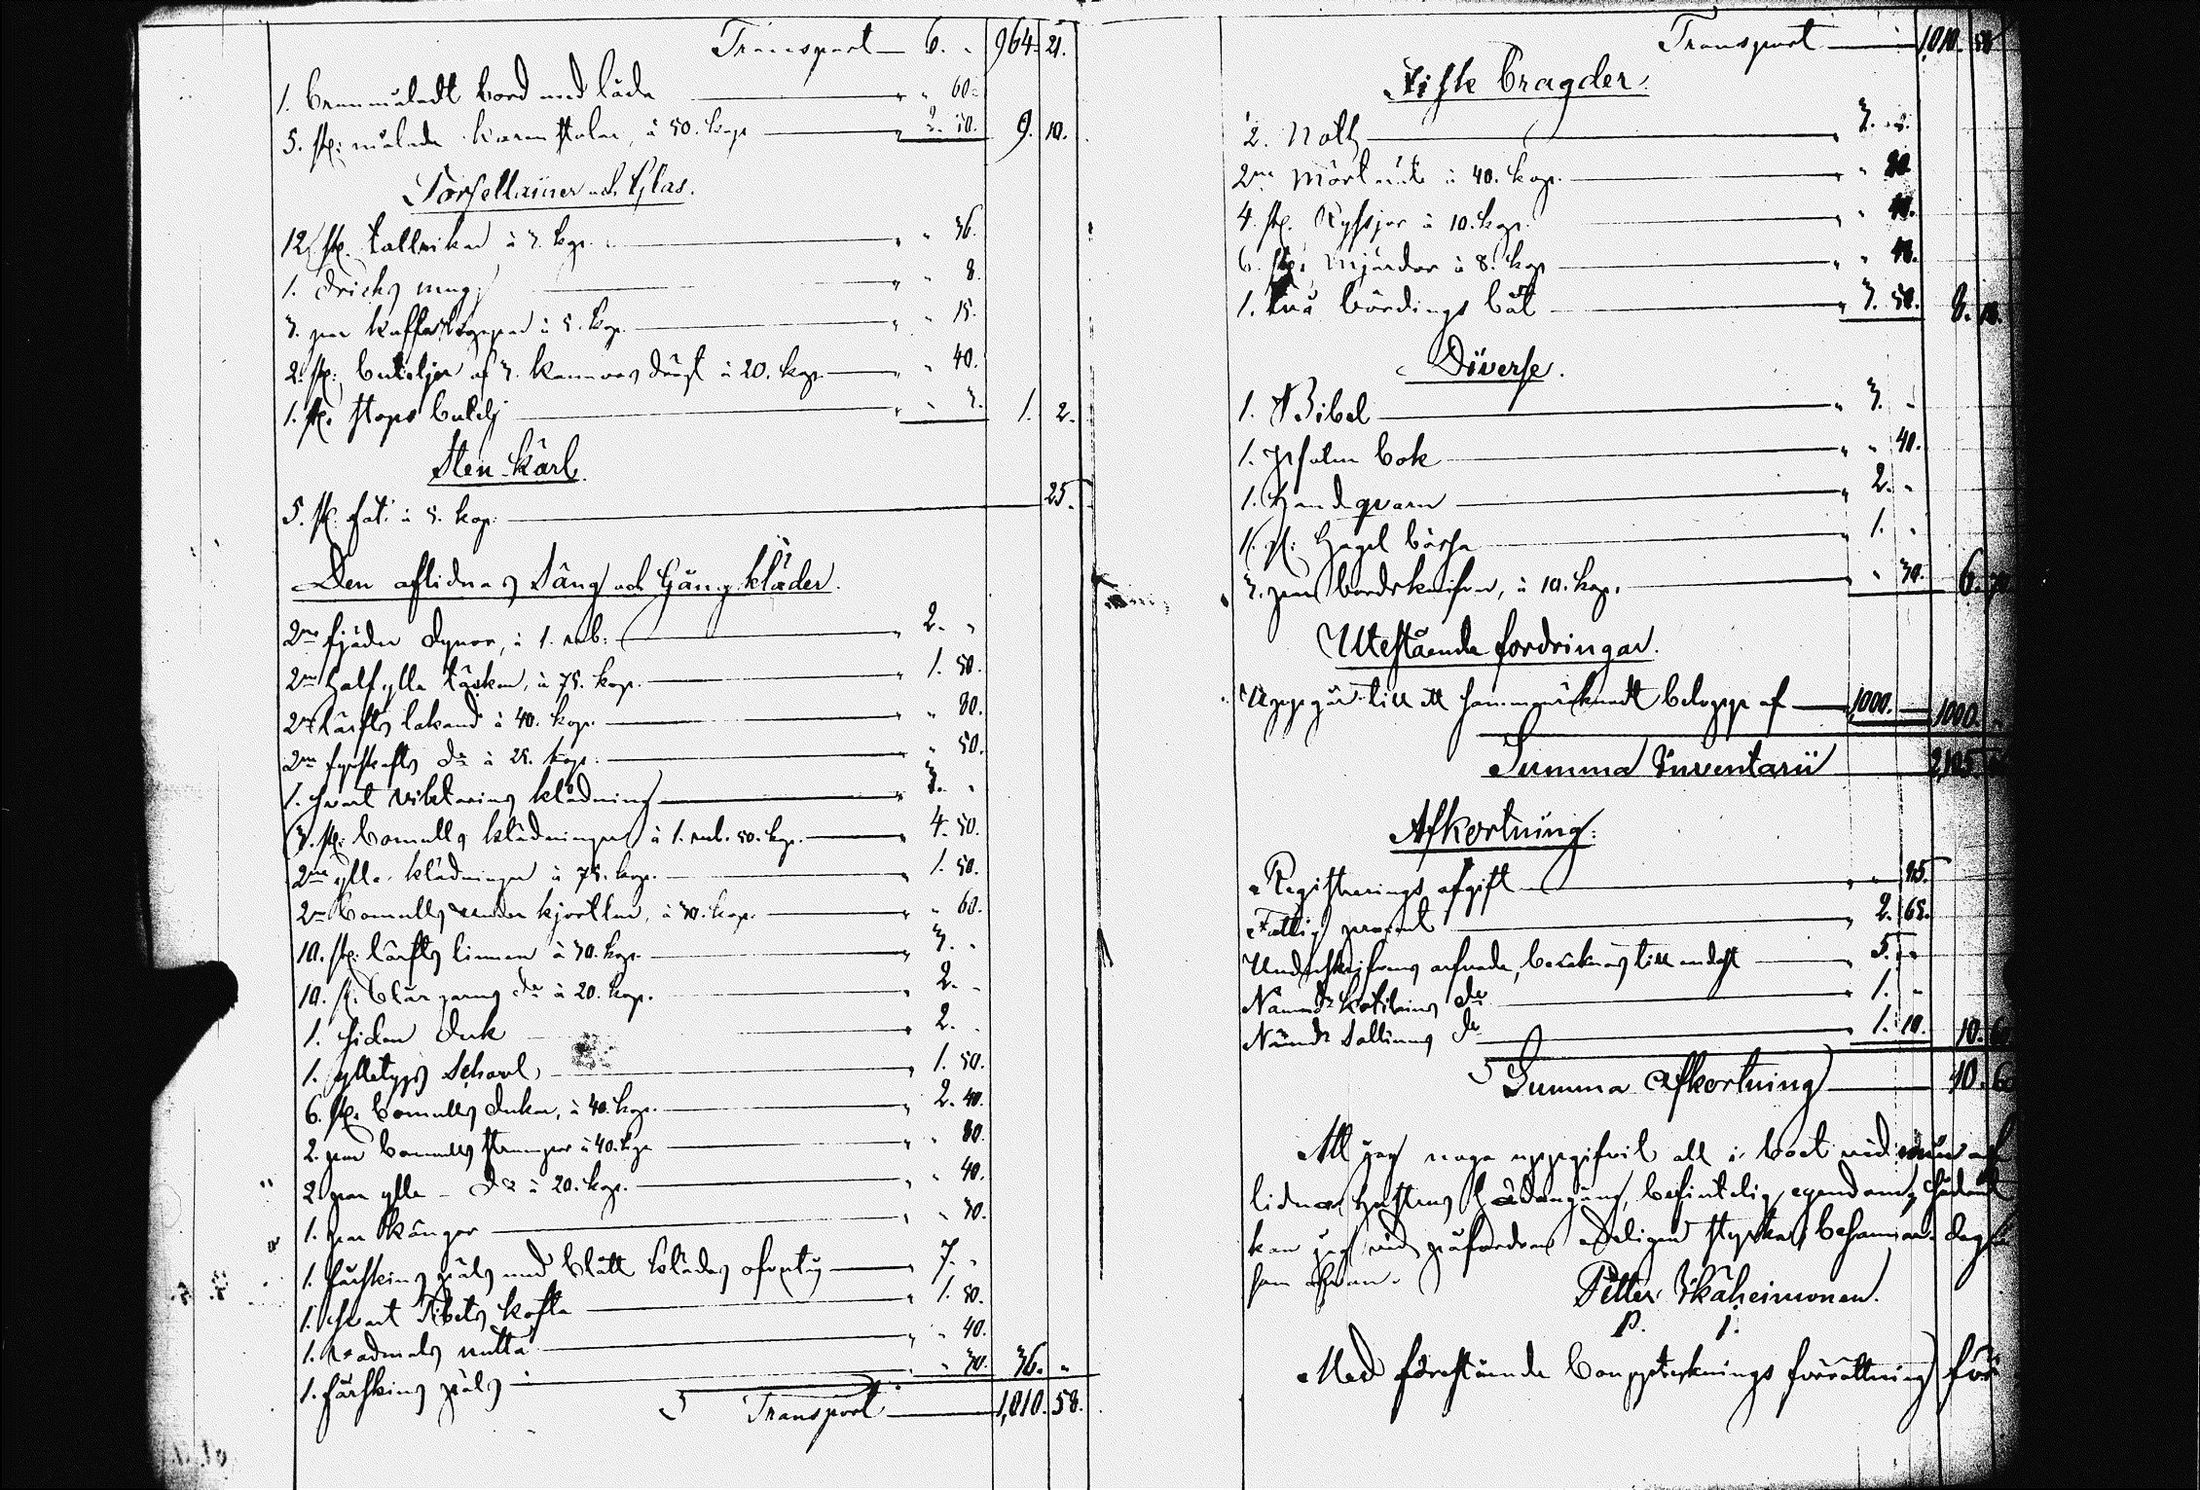 Transport — 6. " 964. 21.
1. brunmåladt bord med låda " " 60.
5. st. målade karmstolar, à 50. kop. " 2. 50. 9. 10.
Porsellainer och Glas.
12. st. tallrikar à 3. kop. " " 36.
1. dricks mugg " " 8.
3. par kaffekoppar à 5. kop. " " 15.
2. st. buteljer af 3. kannors drägt à 20. kop. " " 40.
1. st. stops butelj " " 3. 1. 2.
Sten-kärl.
5. st. fat. à 5. kop. 25.
Den aflidnes Säng och Gång kläder.
2ne fjäder dynor, à 1. rub. " 2. "
2ne halfylle täcken, à 75. kop. " 1. 50.
2ne lärfts lakand à 40. kop. " " 80.
2ne fyrskafts do à 25. kop. " " 50.
1. svart klädning " 3. "
3. st. bomulls klädningar à 1. rub. 50. kop. " 4. 50.
2ne ylle klädningar à 75. kop. " 1. 50.
2ne bomulls under kjortlar, à 30. kop. " " 60.
10. st. lärfts linnen à 30. kop. " 3. "
10. st. blångarns do à 20. kop. " 2. "
1. siden duk " 2. "
1. Schavl " 1. 50.
6. st. bomulls dukar, à 40. kop. " 2. 40.
2. par bomulls strumpor à 40. kop. " " 80.
2 par ylle do à 20. kop. " " 40.
1. par kängor " " 30.
1. fårskins päls med blått klädes öfvertyg " 7. "
1. svart Tibets kofta " 1. 50.
1. wadmals " " 40.
1. fårskins päls " " 30. 36. "
Transport 1,010. 58.
Transport 1,010. 58
Fiske bragder.
2. Nott " 3. "
2ne Mört nät à 40. kop. " " 80
4. st. Ryssjor à 10. kop. " " 40.
6. st. Mjärdor à 8. kop " " 48.
1. två bördings båt " 3. 50. 8. 18.
Diverse.
1. Bibel " 3. "
1. Psalm bok " " 40.
1. handqvarn " 2. "
1. st. Hagel bössa " 1. "
3. par bordsknifvar, à 10. kop. " " 30. 6. 70
Utestående fordringar.
Uppgår till ett sammanräknadt belopp af 1000. 1000. "
Summa Inventarii 2,105.
Afkortning:
Registrerings afgift " "
Fattig procent " 2. 63.
Underskrifvens arfvode, beräknas till endast " 5. "
Nämndn do " 1. "
Nämndn Sallinens do " 1. 10. 10. 60
Summa Afkortning 10. 60
Att jag noga uppgifvit all i boet vid min af
lidna Hustrus hädangång, befintelig egendom, sådant
kan jag vid påfordran edeligen styrka; besannar dag
som ofvan.
Petter Ikäheimonen.
P. I.
Med förestående bouppteckningsförrättning för